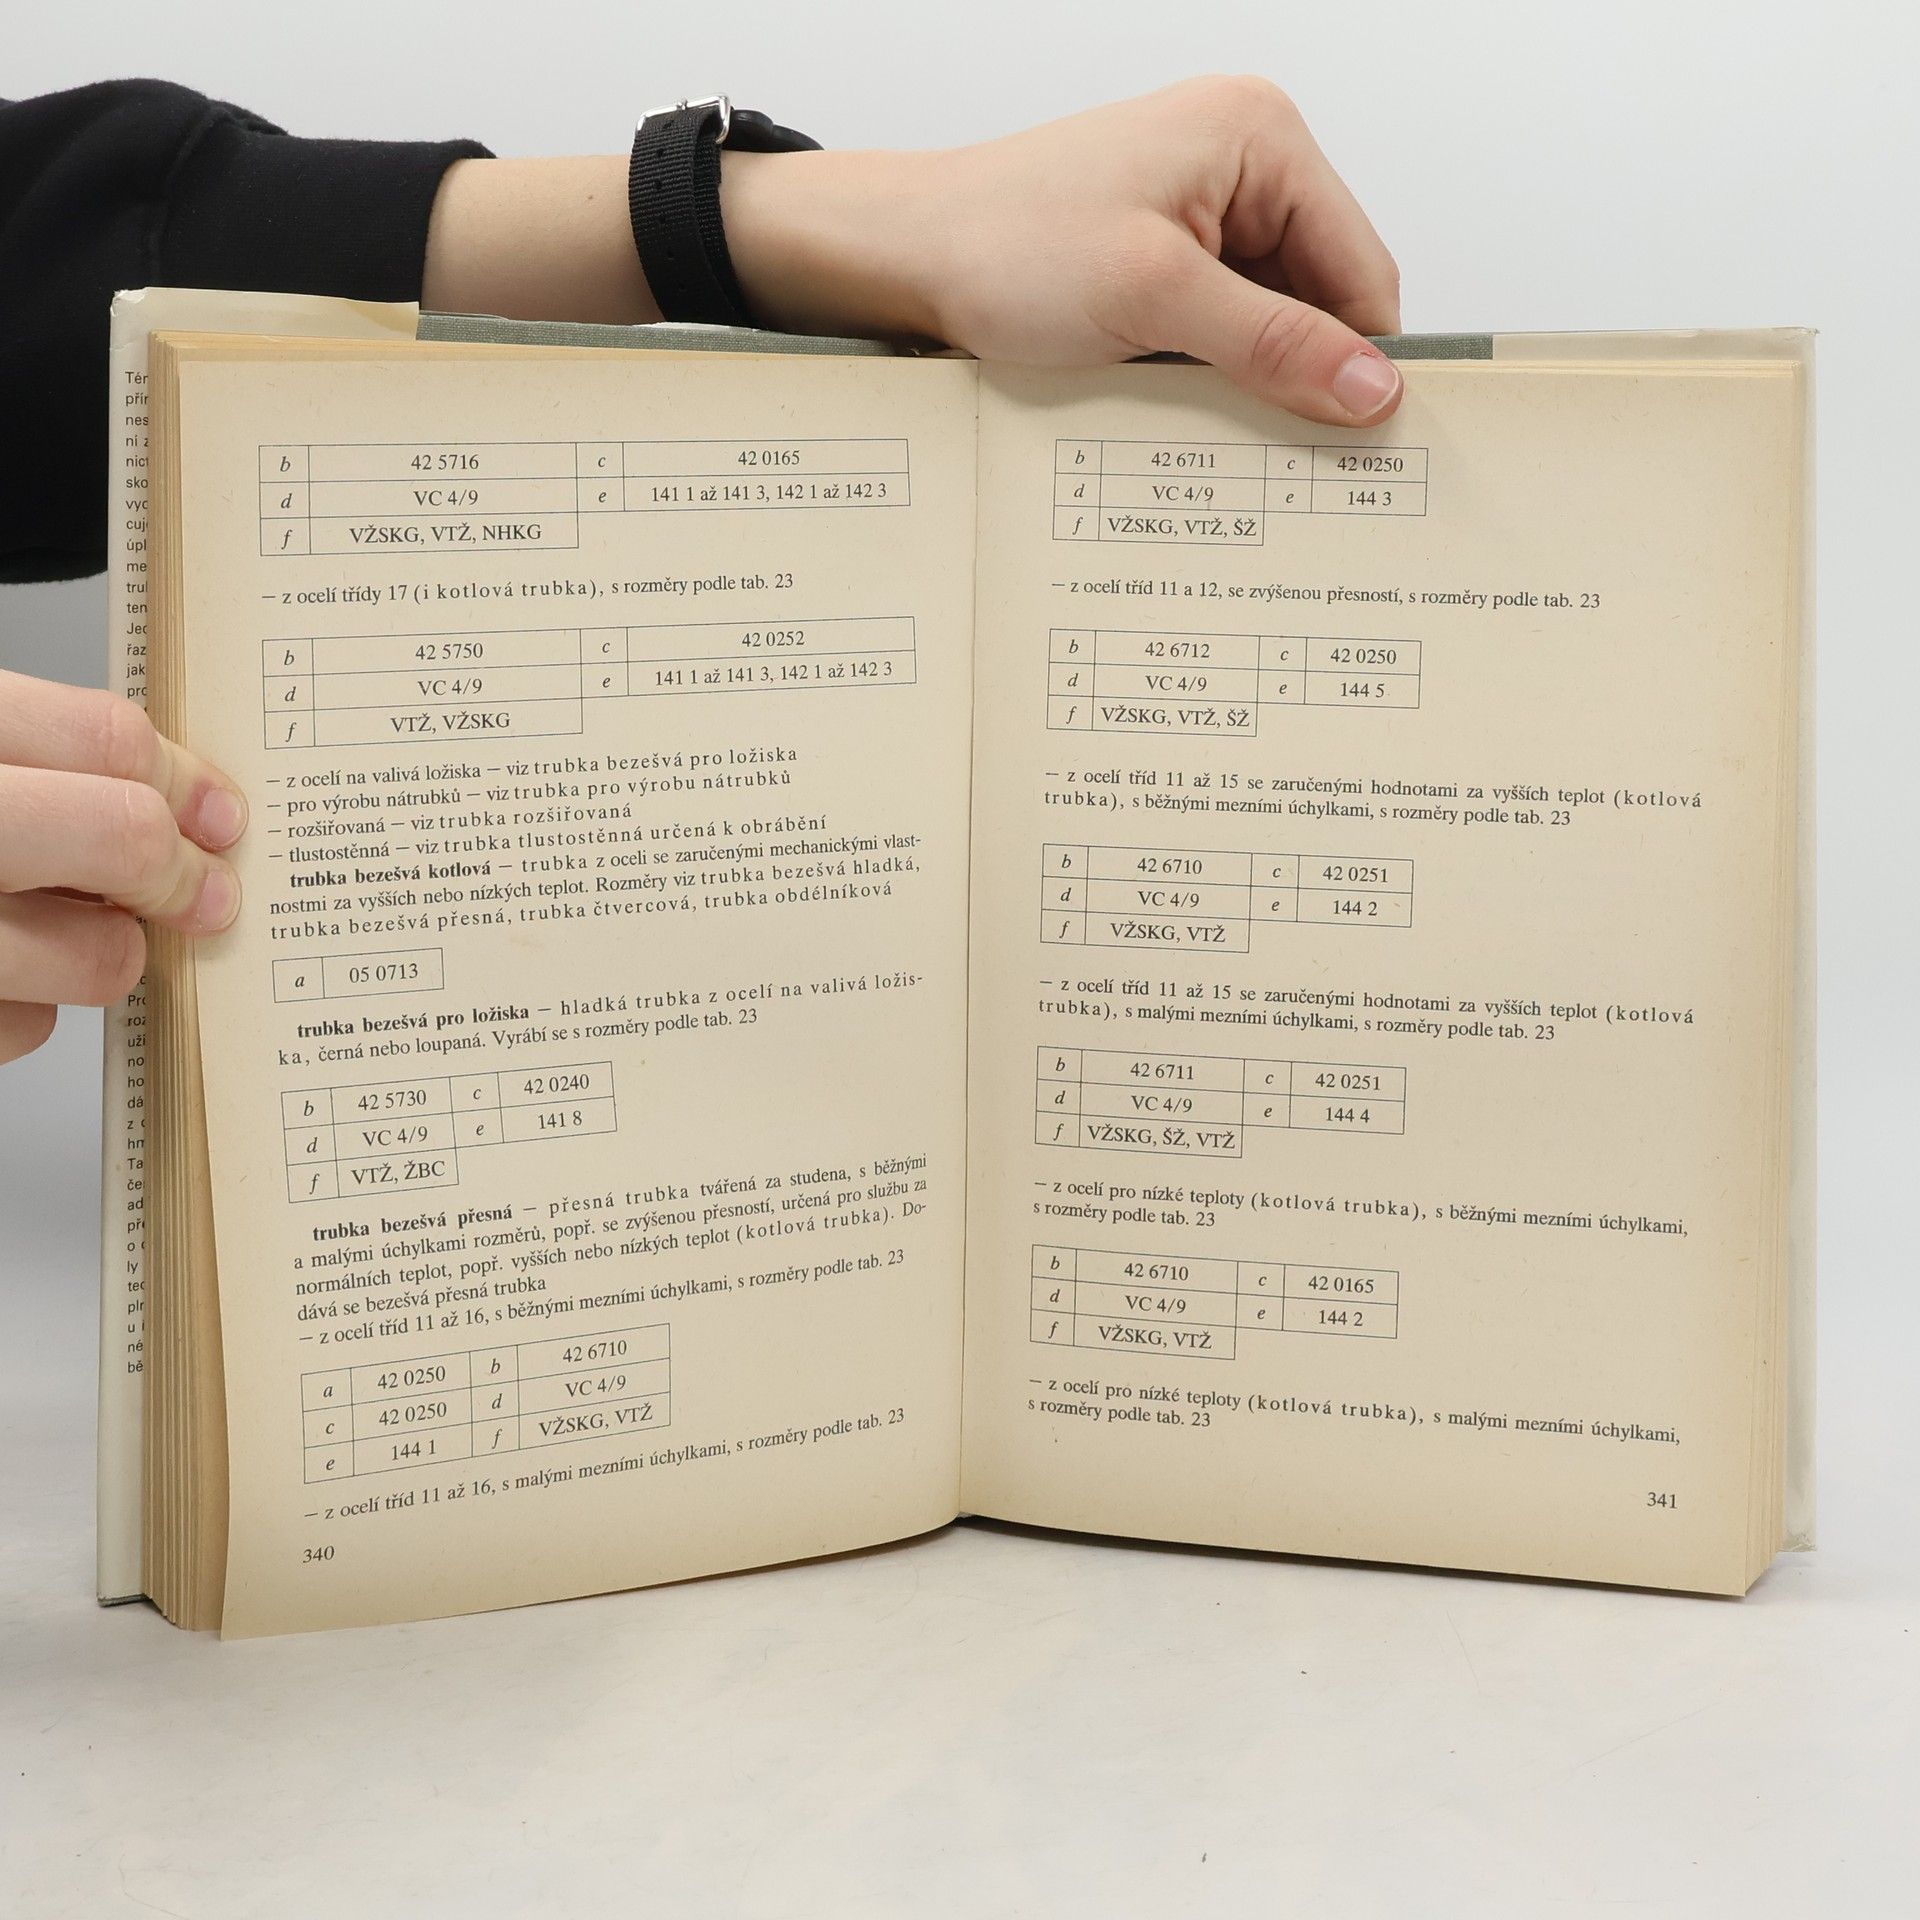 b 42 5716 c 42 0165
d VC 4/9 e 141 1 až 141 3, 142 1 až 142 3
f VŽSKG, VTŽ, NHKG
— z ocelí třídy 17 (i kotlová trubka), s rozměry podle tab. 23
b 42 5750 c 42 0252
d VC 4/9 e 141 1 až 141 3, 142 1 až 142 3
f VTŽ, VŽSKG
— z ocelí na valivá ložiska — viz trubka bezešvá pro ložiska
— pro výrobu nátrubků — viz trubka pro výrobu nátrubků
— rozšiřovaná — viz trubka rozšiřovaná
— tlustostěnná — viz trubka tlustostěnná určená k obrábění
trubka bezešvá kotlová — trubka z oceli se zaručenými mechanickými vlast-
nostmi za vyšších nebo nízkých teplot. Rozměry viz trubka bezešvá hladká,
trubka bezešvá přesná, trubka čtvercová, trubka obdélníková
a 05 0713
trubka bezešvá pro ložiska — hladká trubka z ocelí na valivá ložis-
ka, černá nebo loupaná. Vyrábí se s rozměry podle tab. 23
b 42 5730 c 42 0240
d VC 4/9 e 141 8
f VTŽ, ŽBC
trubka bezešvá přesná — přesná trubka tvářená za studena, s běžnými
a malými úchylkami rozměrů, popř. se zvýšenou přesností, určená pro službu za
normálních teplot, popř. vyšších nebo nízkých teplot (kotlová trubka). Do-
dává se bezešvá přesná trubka
— z ocelí tříd 11 až 16, s běžnými mezními úchylkami, s rozměry podle tab. 23
a 42 0250 b 42 6710
c 42 0250 d VC 4/9
e 144 1 f VŽSKG, VTŽ
— z ocelí tříd 11 až 16, s malými mezními úchylkami, s rozměry podle tab. 23
340
b 42 6711 c 42 0250
d VC 4/9 e 144 3
f VŽSKG, VTŽ, ŠŽ
— z ocelí tříd 11 a 12, se zvýšenou přesností, s rozměry podle tab. 23
b 42 6712 c 42 0250
d VC 4/9 e 144 5
f VŽSKG, VTŽ, ŠŽ
— z ocelí tříd 11 až 15 se zaručenými hodnotami za vyšších teplot (kotlová
trubka), s běžnými mezními úchylkami, s rozměry podle tab. 23
b 42 6710 c 42 0251
d VC 4/9 e 144 2
f VŽSKG, VTŽ
— z ocelí tříd 11 až 15 se zaručenými hodnotami za vyšších teplot (kotlová
trubka), s malými mezními úchylkami, s rozměry podle tab. 23
b 42 6711 c 42 0251
d VC 4/9 e 144 4
f VŽSKG, ŠŽ, VTŽ
— z ocelí pro nízké teploty (kotlová trubka), s běžnými mezními úchylkami,
s rozměry podle tab. 23
b 42 6710 c 42 0165
d VC 4/9 e 144 2
f VŽSKG, VTŽ
— z ocelí pro nízké teploty (kotlová trubka), s malými mezními úchylkami,
s rozměry podle tab. 23
341